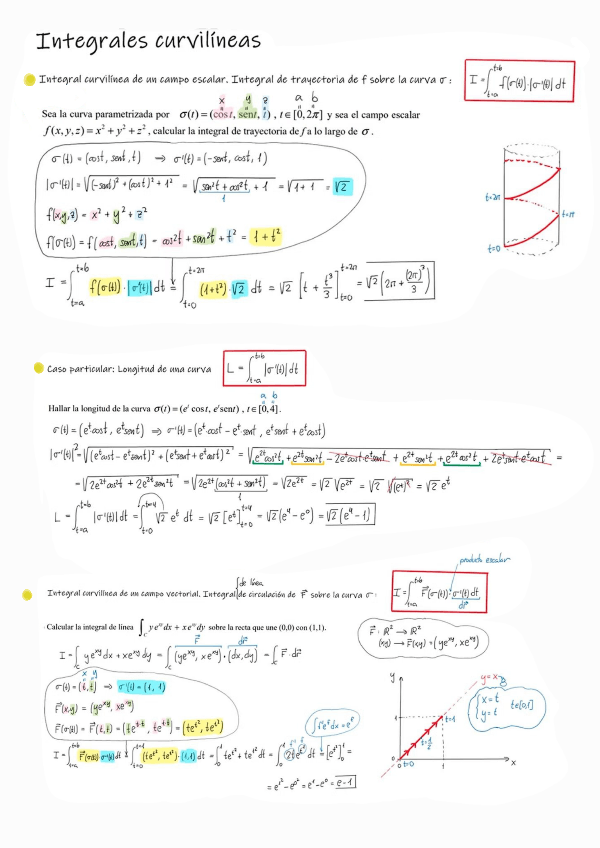 Integrales curvilíneas
Integral curvilínea de un campo escalar. Integral de trayectoria de f sobre la curva σ :
I = ∫_{t=a}^{t=b} f(σ(t))·|σ'(t)| dt
x y z a b
Sea la curva parametrizada por σ(t) = (cos t, sen t, t) , t ∈ [0, 2π] y sea el campo escalar
f(x, y, z) = x² + y² + z² , calcular la integral de trayectoria de f a lo largo de σ .
σ(t) = (cost, sent, t) ⇒ σ'(t) = (-sent, cost, 1)
|σ'(t)| = √((-sent)² + (cost)² + 1²) = √(sen²t + cos²t + 1) = √(1+1) = √2
1
f(x,y,z) = x² + y² + z²
f(σ(t)) = f(cost, sent, t) = cos²t + sen²t + t² = 1 + t²
I = ∫_{t=a}^{t=b} f(σ(t))·|σ'(t)| dt = ∫_{t=0}^{t=2π} (1+t²)·√2 dt = √2 [t + t³/3]_{t=0}^{t=2π} = √2 (2π + (2π)³/3)
t=2π
t=π
t=0
Caso particular: Longitud de una curva
L = ∫_{t=a}^{t=b} |σ'(t)| dt
a b
Hallar la longitud de la curva σ(t) = (eᵗ cos t, eᵗ sen t) , t ∈ [0, 4] .
σ(t) = (eᵗcost, eᵗsent) ⇒ σ'(t) = (eᵗ·cost - eᵗ·sent , eᵗsent + eᵗcost)
|σ'(t)| = √((eᵗcost - eᵗsent)² + (eᵗsent + eᵗcost)²) = √(e²ᵗcos²t + e²ᵗsen²t - 2eᵗcost·eᵗsent + e²ᵗsen²t + e²ᵗcos²t + 2eᵗsent·eᵗcost) =
= √(2e²ᵗcos²t + 2e²ᵗsen²t) = √(2e²ᵗ(cos²t + sen²t)) = √(2e²ᵗ) = √2 √(e²ᵗ) = √2 √((eᵗ)²) = √2 eᵗ
1
L = ∫_{t=a}^{t=b} |σ'(t)| dt = ∫_{t=0}^{t=4} √2 eᵗ dt = √2 [eᵗ]_{t=0}^{t=4} = √2 (e⁴ - e⁰) = √2 (e⁴ - 1)
producto escalar
∫ de línea
Integral curvilínea de un campo vectorial. Integral de circulación de F⃗ sobre la curva σ :
I = ∫_{t=a}^{t=b} F⃗(σ(t))·σ'(t) dt
dr⃗
Calcular la integral de línea ∫_C y e^{xy} dx + x e^{xy} dy sobre la recta que une (0,0) con (1,1).
F⃗ dr⃗
I = ∫_C ye^{xy} dx + xe^{xy} dy = ∫_C (ye^{xy}, xe^{xy})·(dx, dy) = ∫_C F⃗·dr⃗
F⃗ : ℝ² → ℝ²
(x,y) → F⃗(x,y) = (ye^{xy}, xe^{xy})
x y
σ(t) = (t, t) ⇒ σ'(t) = (1, 1)
F⃗(x,y) = (ye^{xy}, xe^{xy})
F⃗(σ(t)) = F⃗(t, t) = (te^{t·t}, te^{t·t}) = (te^{t²}, te^{t²})
∫f'e^f dx = e^f
I = ∫_{t=a}^{t=b} F⃗(σ(t))·σ'(t) dt = ∫_{t=0}^{t=1} (te^{t²}, te^{t²})·(1, 1) dt = ∫_0^1 te^{t²} + te^{t²} dt = ∫_0^1 2te^{t²} dt = [e^{t²}]_0^1 =
= e^{1²} - e^{0²} = e¹ - e⁰ = e - 1
y
y=x
x = t
y = t
t∈[0,1]
1
t=1
t=1/2
t=0
0
1
x